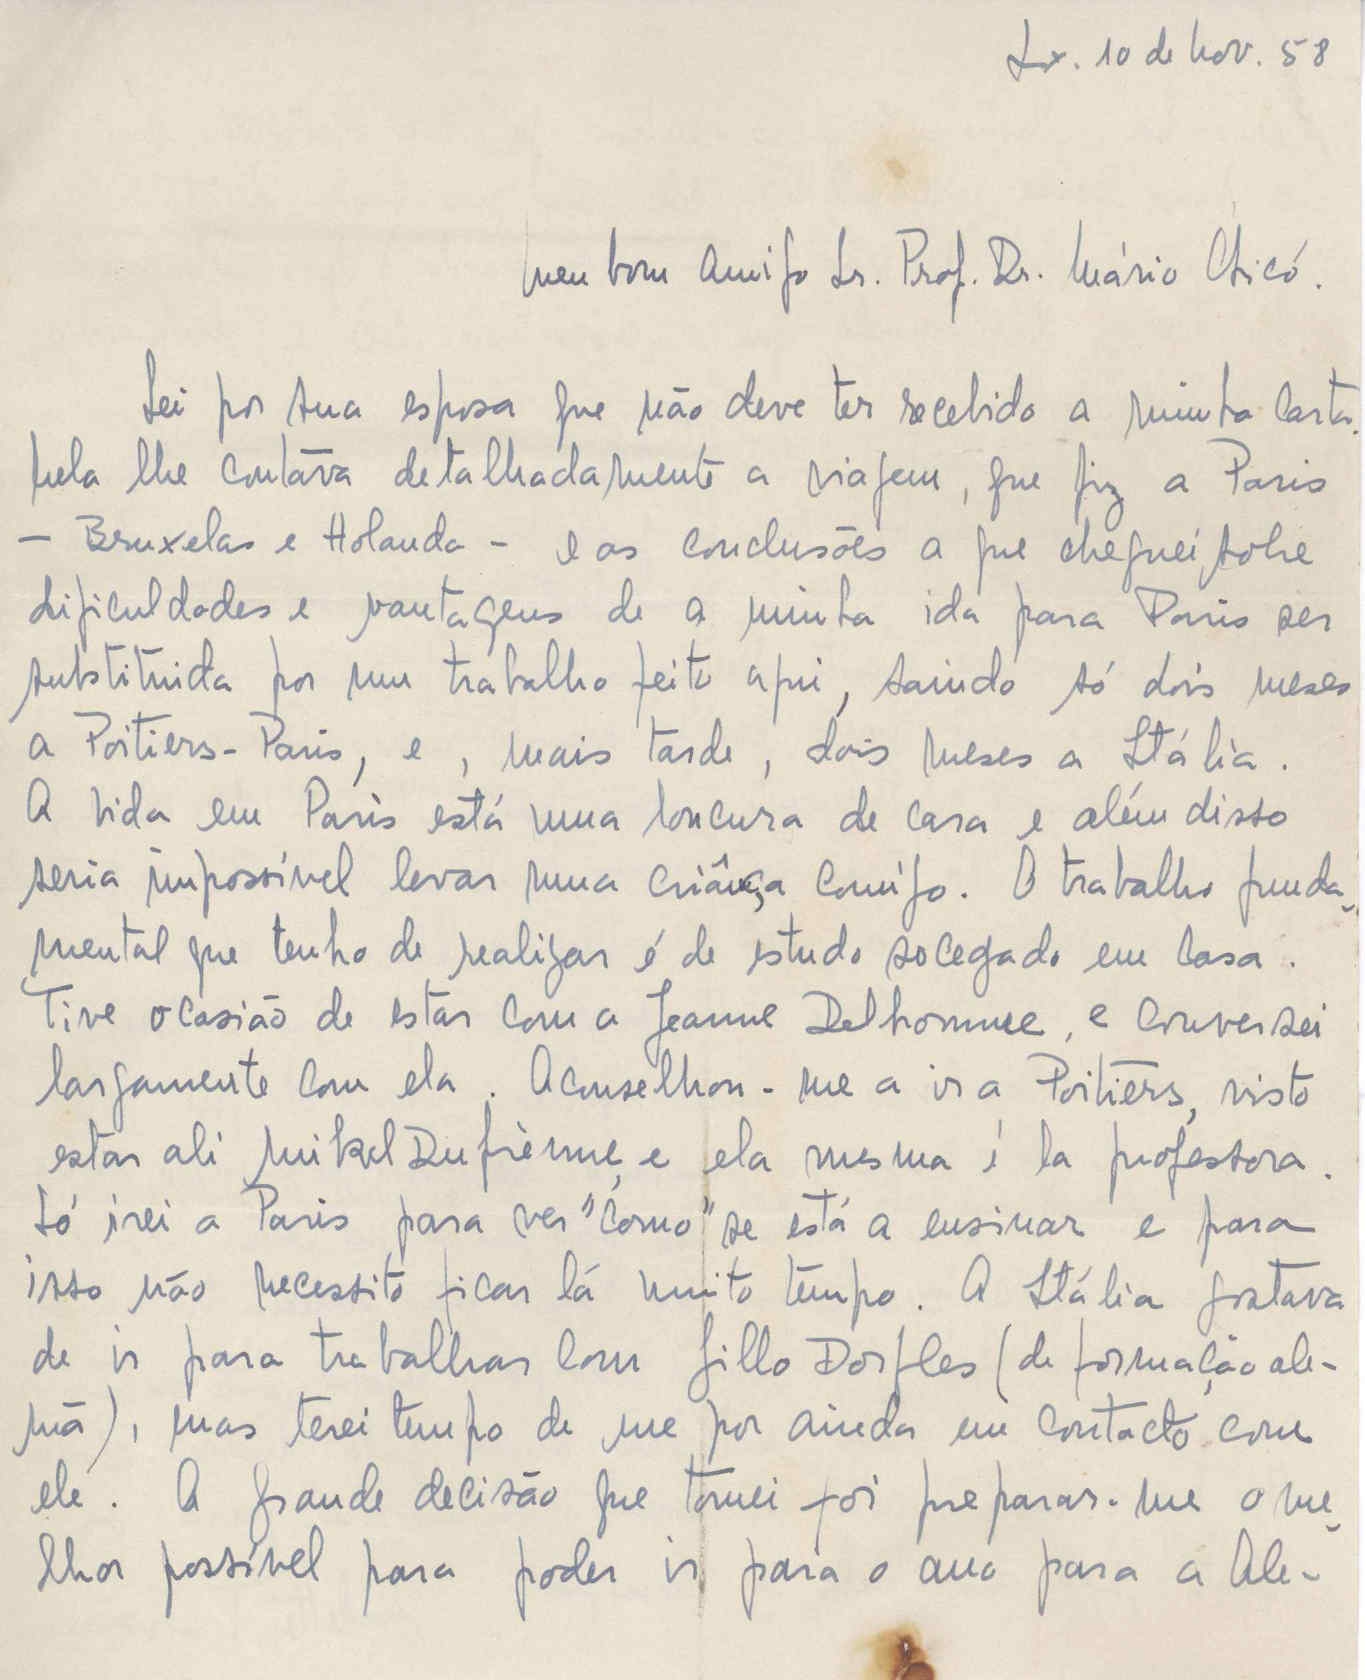 Lx. 10 de Nov. 58
Meu bom Amigo Sr. Prof. Dr. Mário Chicó.
Sei por sua esposa que não deve ter recebido a minha carta.
Nela lhe contava detalhadamente a viagem, que fiz a Paris
- Bruxelas e Holanda - e as conclusões a que cheguei, sobre
dificuldades e vantagens de a minha ida para Paris ser
substituida por um trabalho feito aqui, saindo só dois meses
a Poitiers-Paris, e, mais tarde, dois meses a Itália.
A vida em Paris está uma loucura de cara e além disso
seria impossível levar uma criança comigo. O trabalho funda-
mental que tenho de realizar é de estudo socegado em casa.
Tive ocasião de estar com a Jeanne Delhomme, e conversei
largamente com ela. Aconselhou-me a ir a Poitiers, visto
estar ali Mikel Dufrènne, e ela mesma é la professora.
Só irei a Paris para ver "como" se está a ensinar e para
isso não necessito ficar lá muito tempo. A Itália gostava
de ir para trabalhar com Gillo Dorfles (de formação ale-
mã), mas terei tempo de me por ainda em contacto com
ele. A grande decisão que tomei foi preparar-me o me-
lhor possível para poder ir para o ano para a Ale-